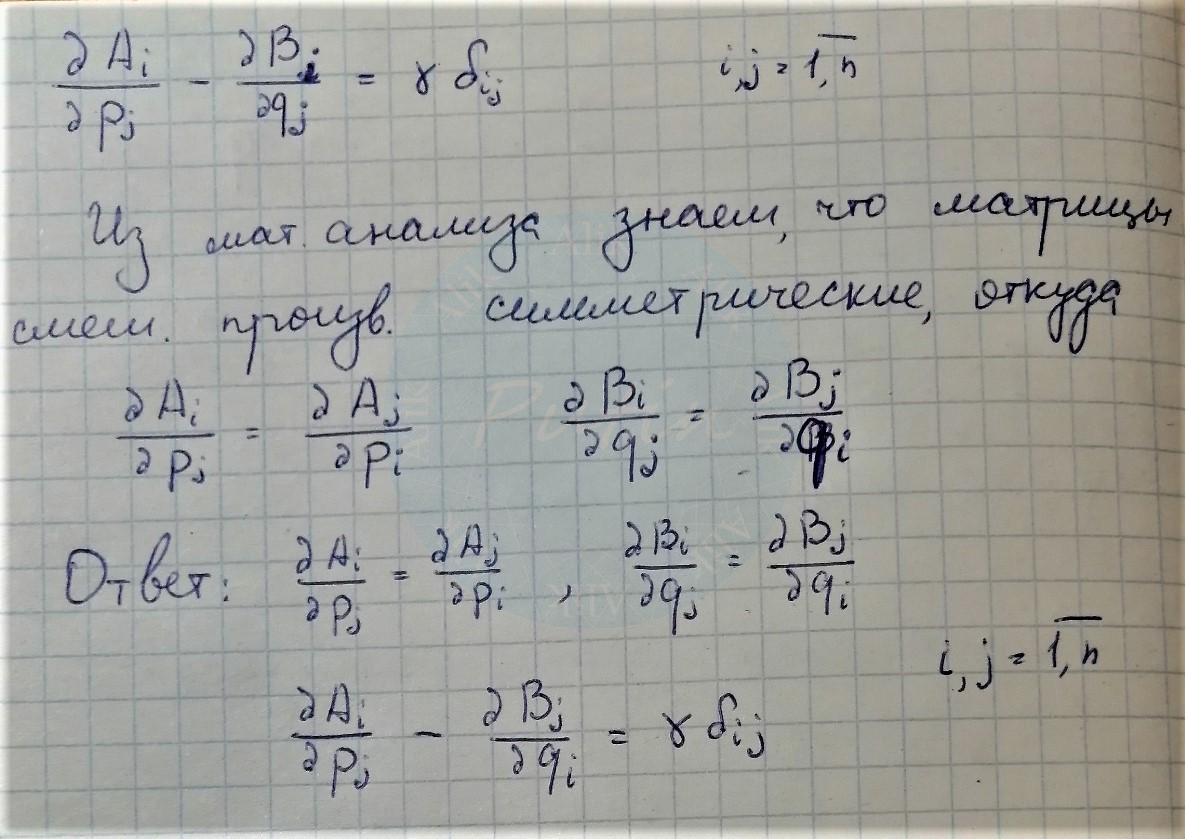 ∂A_i/∂p_j − ∂B_i/∂q_j = γ δ_ij    i,j = \overline{1,n}
Из мат. анализа знаем, что матрицы
смеш. произв. симметрические, откуда
∂A_i/∂p_j = ∂A_j/∂p_i    ∂B_i/∂q_j = ∂B_j/∂q_i
Ответ: ∂A_i/∂p_j = ∂A_j/∂p_i , ∂B_i/∂q_j = ∂B_j/∂q_i
i,j = \overline{1,n}
∂A_i/∂p_j − ∂B_j/∂q_i = γ δ_ij